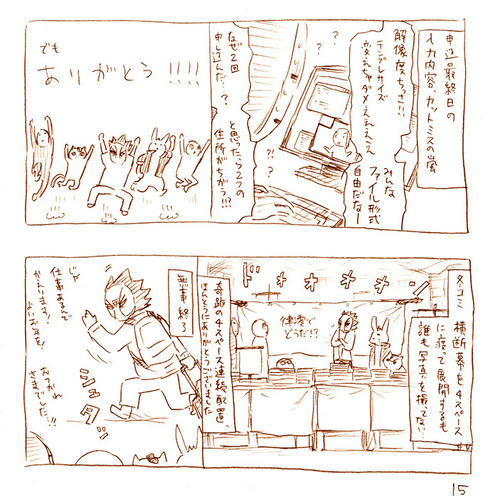 申込最終日の
入力内容、カットミスの嵐
みんな
ファイル形式
自由だなー
解像度ちっさ!!
テンプレサイズ
変えちゃダメええええ
?
?
?
?
なぜ2回
申し込んだ…?
と思ったら2つの
住所がちがう!?
でも
ありがとう!!!!
冬コミ
横断幕を4スペース
に渡って展開するも
誰も写真を撮ってない…
ドォオオオン
律零で
どうだ!?
奇跡の4スペース連続配置、
ほんとうにありがとうございました
無事終了
じゃ
仕事あるんで
かえります!
よいお年を!
シュタッ
おつかれ
さまでした!!
15